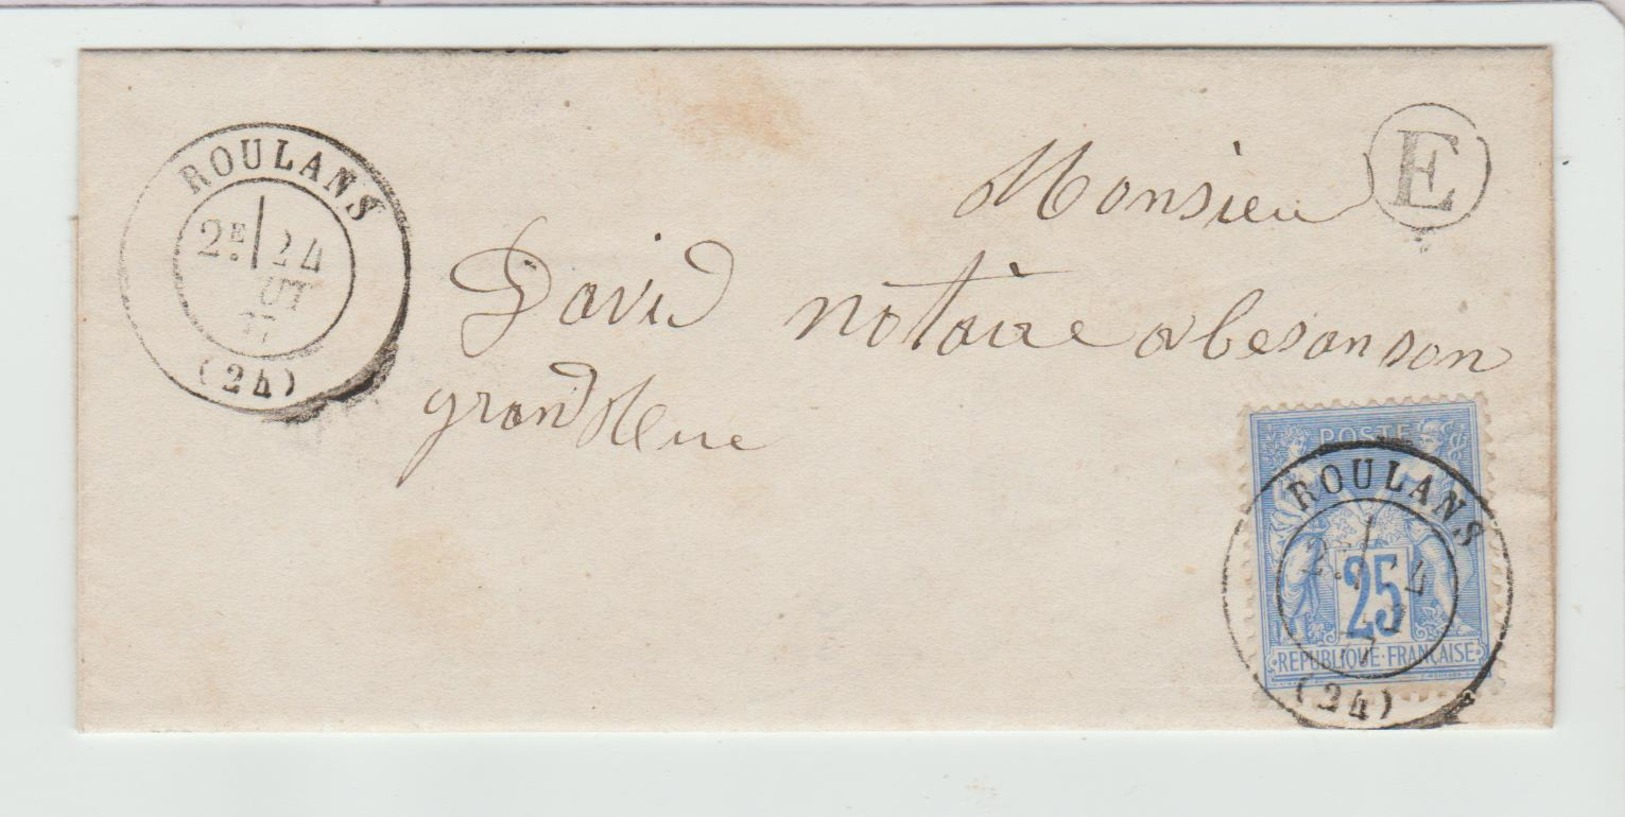 ROULANS
2E 24
UT
(24)
E
Monsieu
David notaire a besanson
grand Rue
POSTE
25
REPUBLIQUE FRANÇAISE
ROULANS
2E 4
(24)